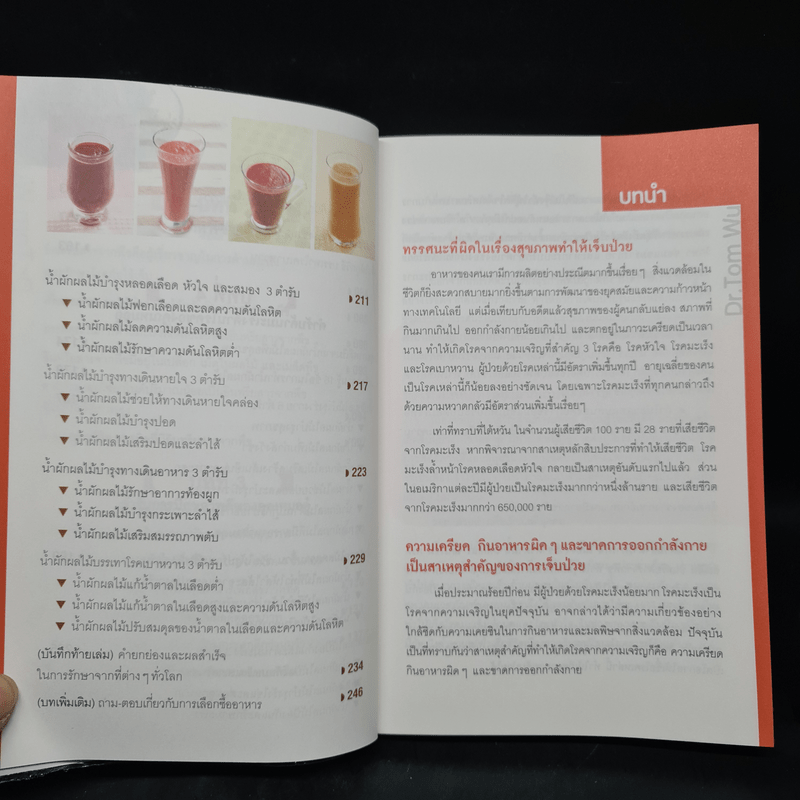 น้ำผักผลไม้บำรุงหลอดเลือด หัวใจ และสมอง 3 ตำรับ 211
▼ น้ำผักผลไม้ฟอกเลือดและลดความดันโลหิต
▼ น้ำผักผลไม้ลดความดันโลหิตสูง
▼ น้ำผักผลไม้รักษาความดันโลหิตต่ำ
น้ำผักผลไม้บำรุงทางเดินหายใจ 3 ตำรับ 217
▼ น้ำผักผลไม้ช่วยให้ทางเดินหายใจคล่อง
▼ น้ำผักผลไม้บำรุงปอด
▼ น้ำผักผลไม้เสริมปอดและลำไส้
น้ำผักผลไม้บำรุงทางเดินอาหาร 3 ตำรับ 223
▼ น้ำผักผลไม้รักษาอาการท้องผูก
▼ น้ำผักผลไม้บำรุงกระเพาะลำไส้
▼ น้ำผักผลไม้เสริมสมรรถภาพตับ
น้ำผักผลไม้บรรเทาโรคเบาหวาน 3 ตำรับ 229
▼ น้ำผักผลไม้แก้น้ำตาลในเลือดต่ำ
▼ น้ำผักผลไม้แก้น้ำตาลในเลือดสูงและความดันโลหิตสูง
▼ น้ำผักผลไม้ปรับสมดุลของน้ำตาลในเลือดและความดันโลหิต
(บันทึกท้ายเล่ม) คำยกย่องและผลสำเร็จ
ในการรักษาจากที่ต่างๆ ทั่วโลก 234
(บทเพิ่มเติม) ถาม-ตอบเกี่ยวกับการเลือกซื้ออาหาร 246
บทนำ
Dr.Tom Wu
ทรรศนะที่ผิดในเรื่องสุขภาพทำให้เจ็บป่วย
อาหารของคนเรามีการผลิตอย่างประณีตมากขึ้นเรื่อยๆ สิ่งแวดล้อมใน
ชีวิตก็ยิ่งสะดวกสบายมากยิ่งขึ้นตามการพัฒนาของยุคสมัยและความก้าวหน้า
ทางเทคโนโลยี แต่เมื่อเทียบกับอดีตแล้วสุขภาพของผู้คนกลับแย่ลง สภาพที่
กินมากเกินไป ออกกำลังกายน้อยเกินไป และตกอยู่ในภาวะเครียดเป็นเวลา
นาน ทำให้เกิดโรคจากความเจริญที่สำคัญ 3 โรคคือ โรคหัวใจ โรคมะเร็ง
และโรคเบาหวาน ผู้ป่วยด้วยโรคเหล่านี้มีอัตราเพิ่มขึ้นทุกปี อายุเฉลี่ยของคน
เป็นโรคเหล่านี้ก็น้อยลงอย่างชัดเจน โดยเฉพาะโรคมะเร็งที่ทุกคนกล่าวถึง
ด้วยความหวาดกลัวมีอัตราส่วนเพิ่มขึ้นเรื่อยๆ
เท่าที่ทราบที่ไต้หวัน ในจำนวนผู้เสียชีวิต 100 ราย มี 28 รายที่เสียชีวิต
จากโรคมะเร็ง หากพิจารณาจากสาเหตุหลักสิบประการที่ทำให้เสียชีวิต โรค
มะเร็งล้ำหน้าโรคหลอดเลือดหัวใจ กลายเป็นสาเหตุอันดับแรกไปแล้ว ส่วน
ในอเมริกาแต่ละปีมีผู้ป่วยเป็นโรคมะเร็งมากกว่าหนึ่งล้านราย และเสียชีวิต
จากโรคมะเร็งมากกว่า 650,000 ราย
ความเครียด กินอาหารผิดๆ และขาดการออกกำลังกาย
เป็นสาเหตุสำคัญของการเจ็บป่วย
เมื่อประมาณร้อยปีก่อน มีผู้ป่วยด้วยโรคมะเร็งน้อยมาก โรคมะเร็งเป็น
โรคจากความเจริญในยุคปัจจุบัน อาจกล่าวได้ว่ามีความเกี่ยวข้องอย่าง
ใกล้ชิดกับความเคยชินในการกินอาหารและมลพิษจากสิ่งแวดล้อม ปัจจุบัน
เป็นที่ทราบกันว่าสาเหตุสำคัญที่ทำให้เกิดโรคจากความเจริญก็คือ ความเครียด
กินอาหารผิดๆ และขาดการออกกำลังกาย